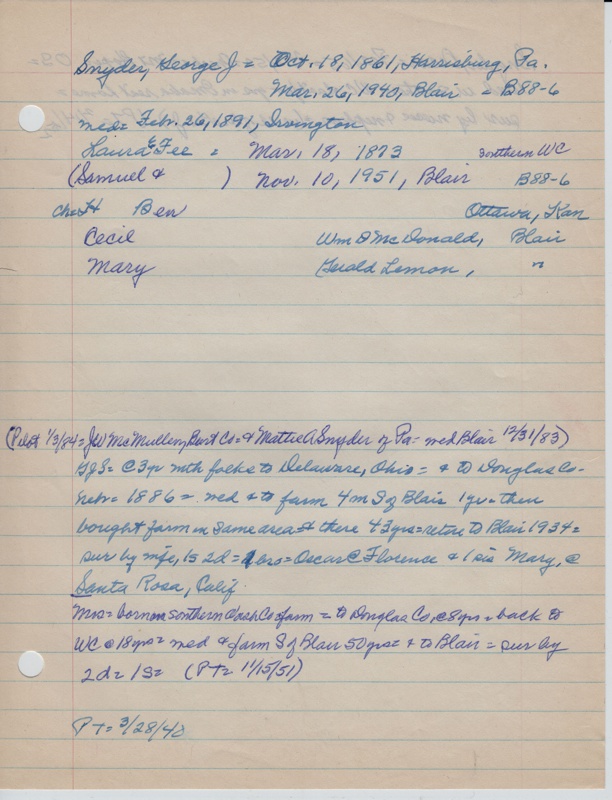 Snyder, George J = Oct. 18, 1861, Harrisburg, Pa.
Mar. 26, 1940, Blair = B88-6
med= Febr. 26, 1891, Irvington
Laura E Fee = Mar. 18, 1873 southern WC
(Samuel & ) Nov. 10, 1951, Blair B88-6
Ben Ottawa, Kan
Cecil Wm D McDonald, Blair
Mary Gerald Lemon, "
(Pilot 1/3/84= JW McMullen, Burt Co= & Mattie A Snyder of Pa= med Blair 12/31/83)
GJS= @ 3yr with folks to Delaware, Ohio= & to Douglas Co-
Nebr= 1886= med & to farm 4 m S of Blair 1 yr= then
bought farm in same area & there 43 yrs= retire to Blair 1934=
sur by wife, 1s 2d= 1 bro= Oscar @ Florence & 1 sis Mary, @
Santa Rosa, Calif.
Mrs= born on southern Wash Co farm = to Douglas Co, @ 8 yrs = back to
WC @ 18 yrs= med & farm S of Blair 50 yrs= & to Blair = sur by
2d= 1s= (PT= 11/15/51)
PT= 3/28/40